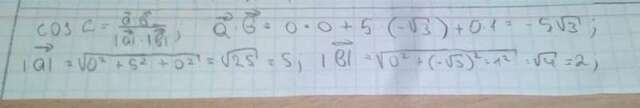 cos C = a⃗ b⃗ / |a⃗|·|b⃗|; a⃗·b⃗ = 0·0 + 5·(-√3) + 0·1 = -5√3;
|a⃗| = √0² + 5² + 0² = √25 = 5, |b⃗| = √0² + (-√3)² + 1² = √4 = 2,